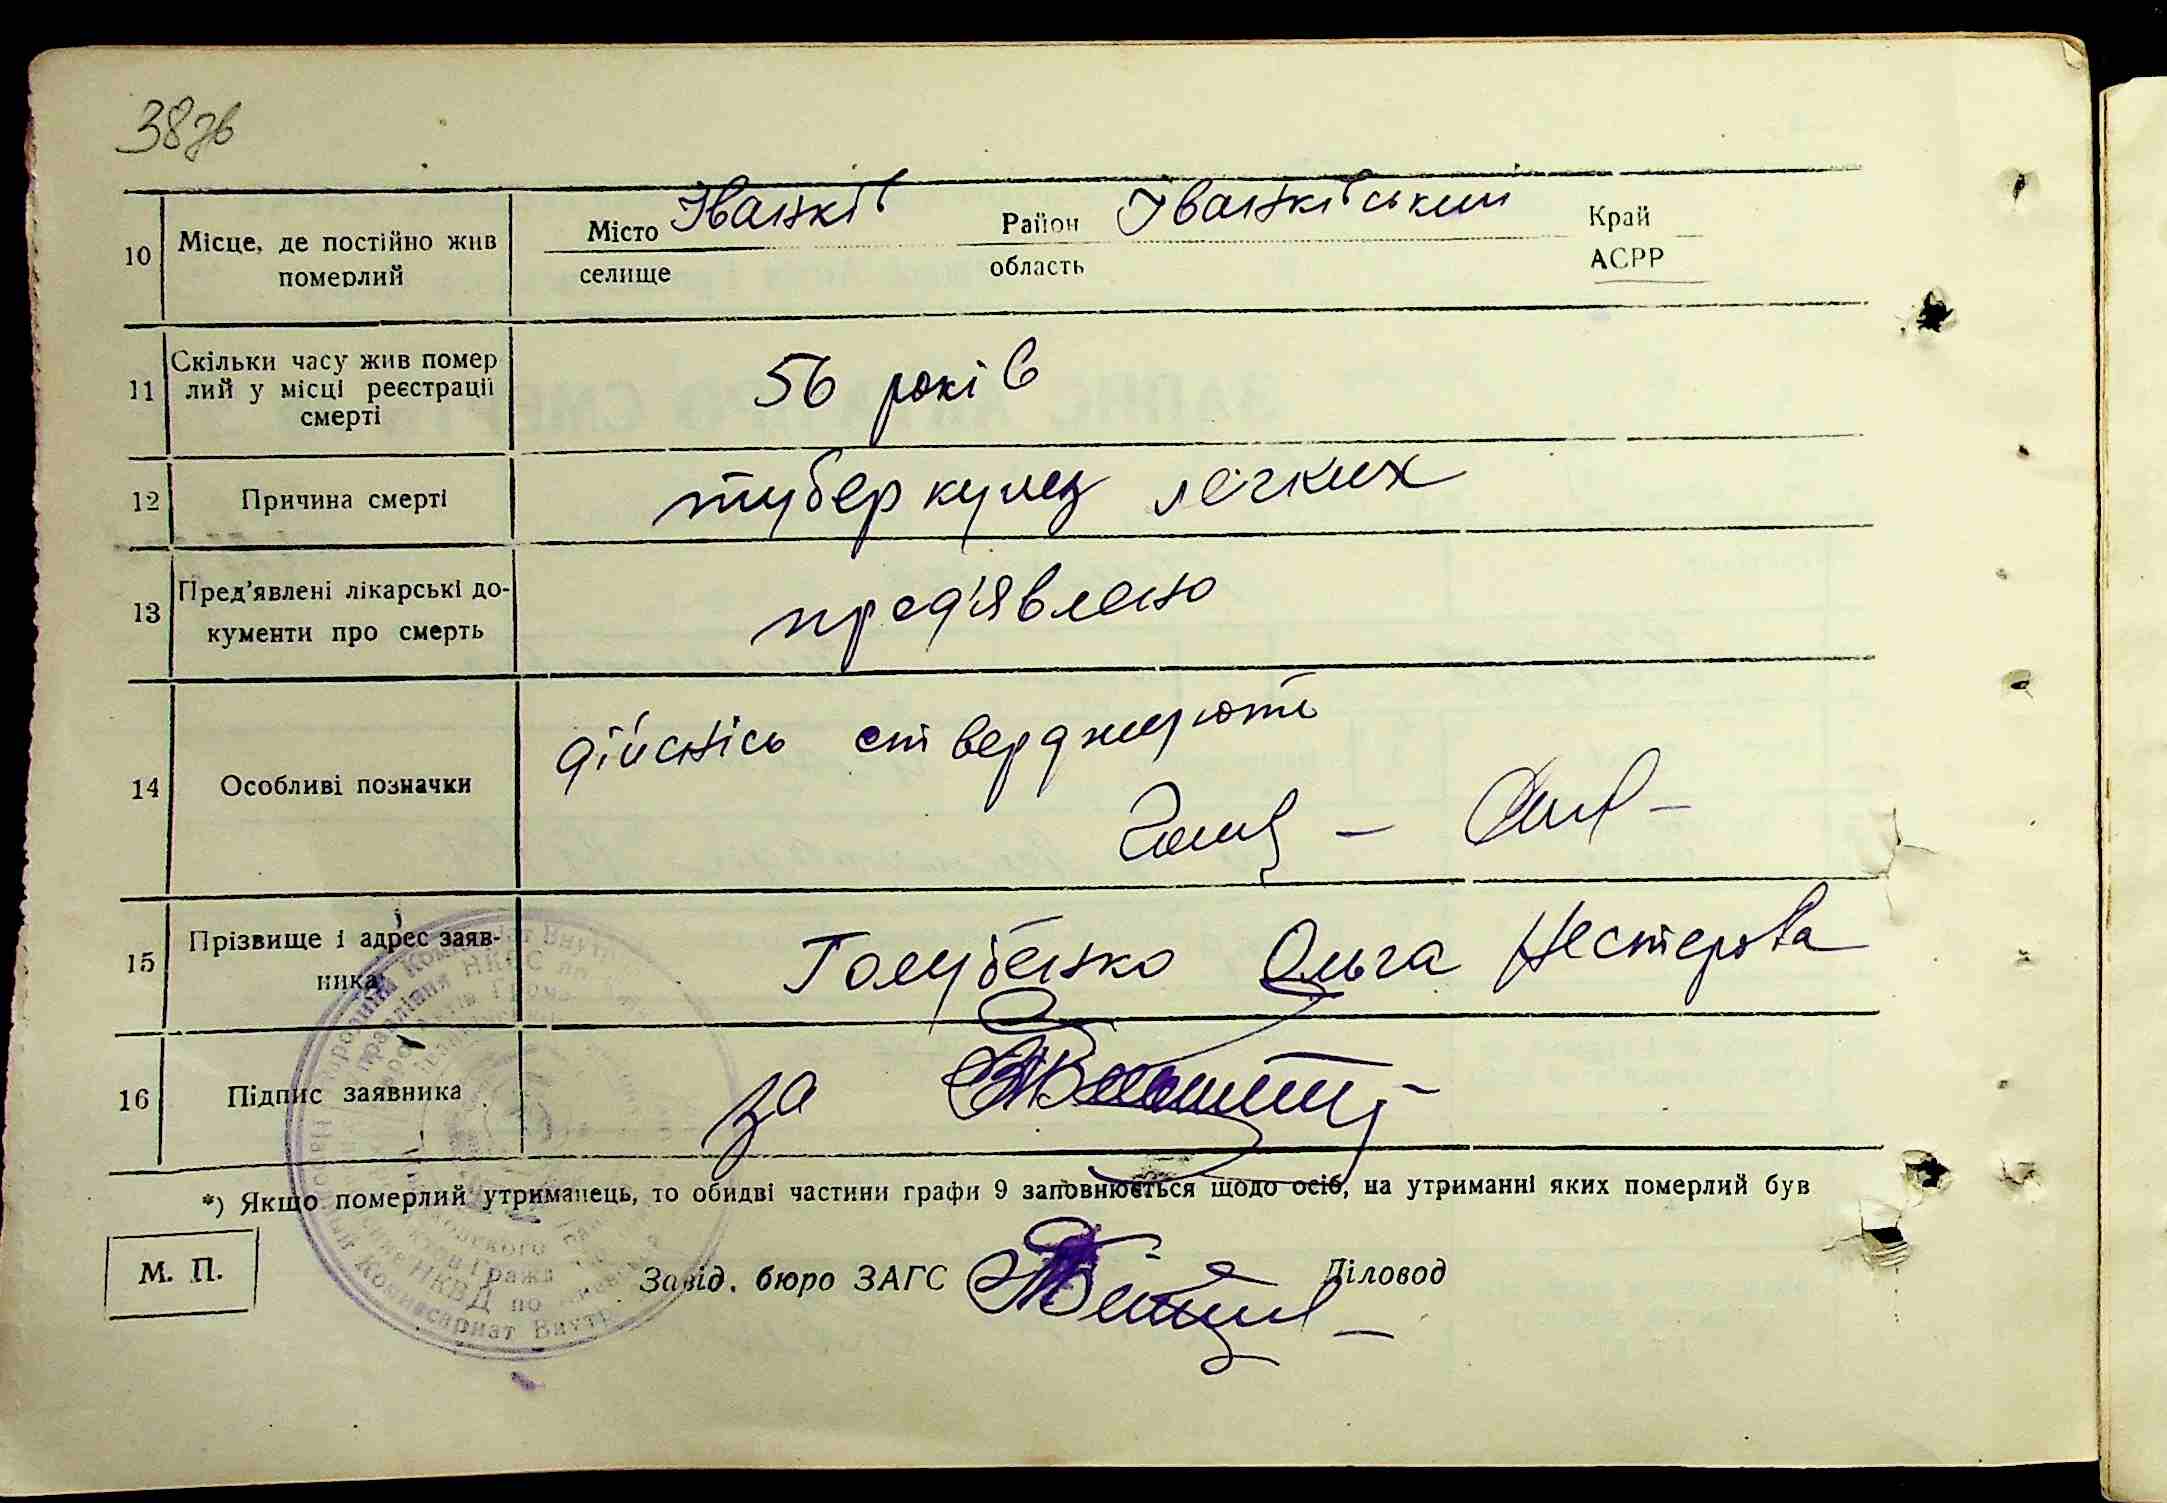 38зв
10 Місце, де постійно жив померлий Місто Іванків Район Іванківський Край
селище область АСРР
11 Скільки часу жив помер
лий у місці реєстрації
смерті
56 років
12 Причина смерті туберкульоз лєгких
13 Пред'явлені лікарські до-
кументи про смерть
пред'явлено
14 Особливі позначки
дійсність стверджують
15 Прізвище і адрес заяв-
ника
Голубенко Ольга Нестерова
16 Підпис заявника за
*) Якщо померлий утриманець, то обидві частини графи 9 заповнюється щодо осіб, на утриманні яких померлий був
М. П. Завід. бюро ЗАГС Діловод